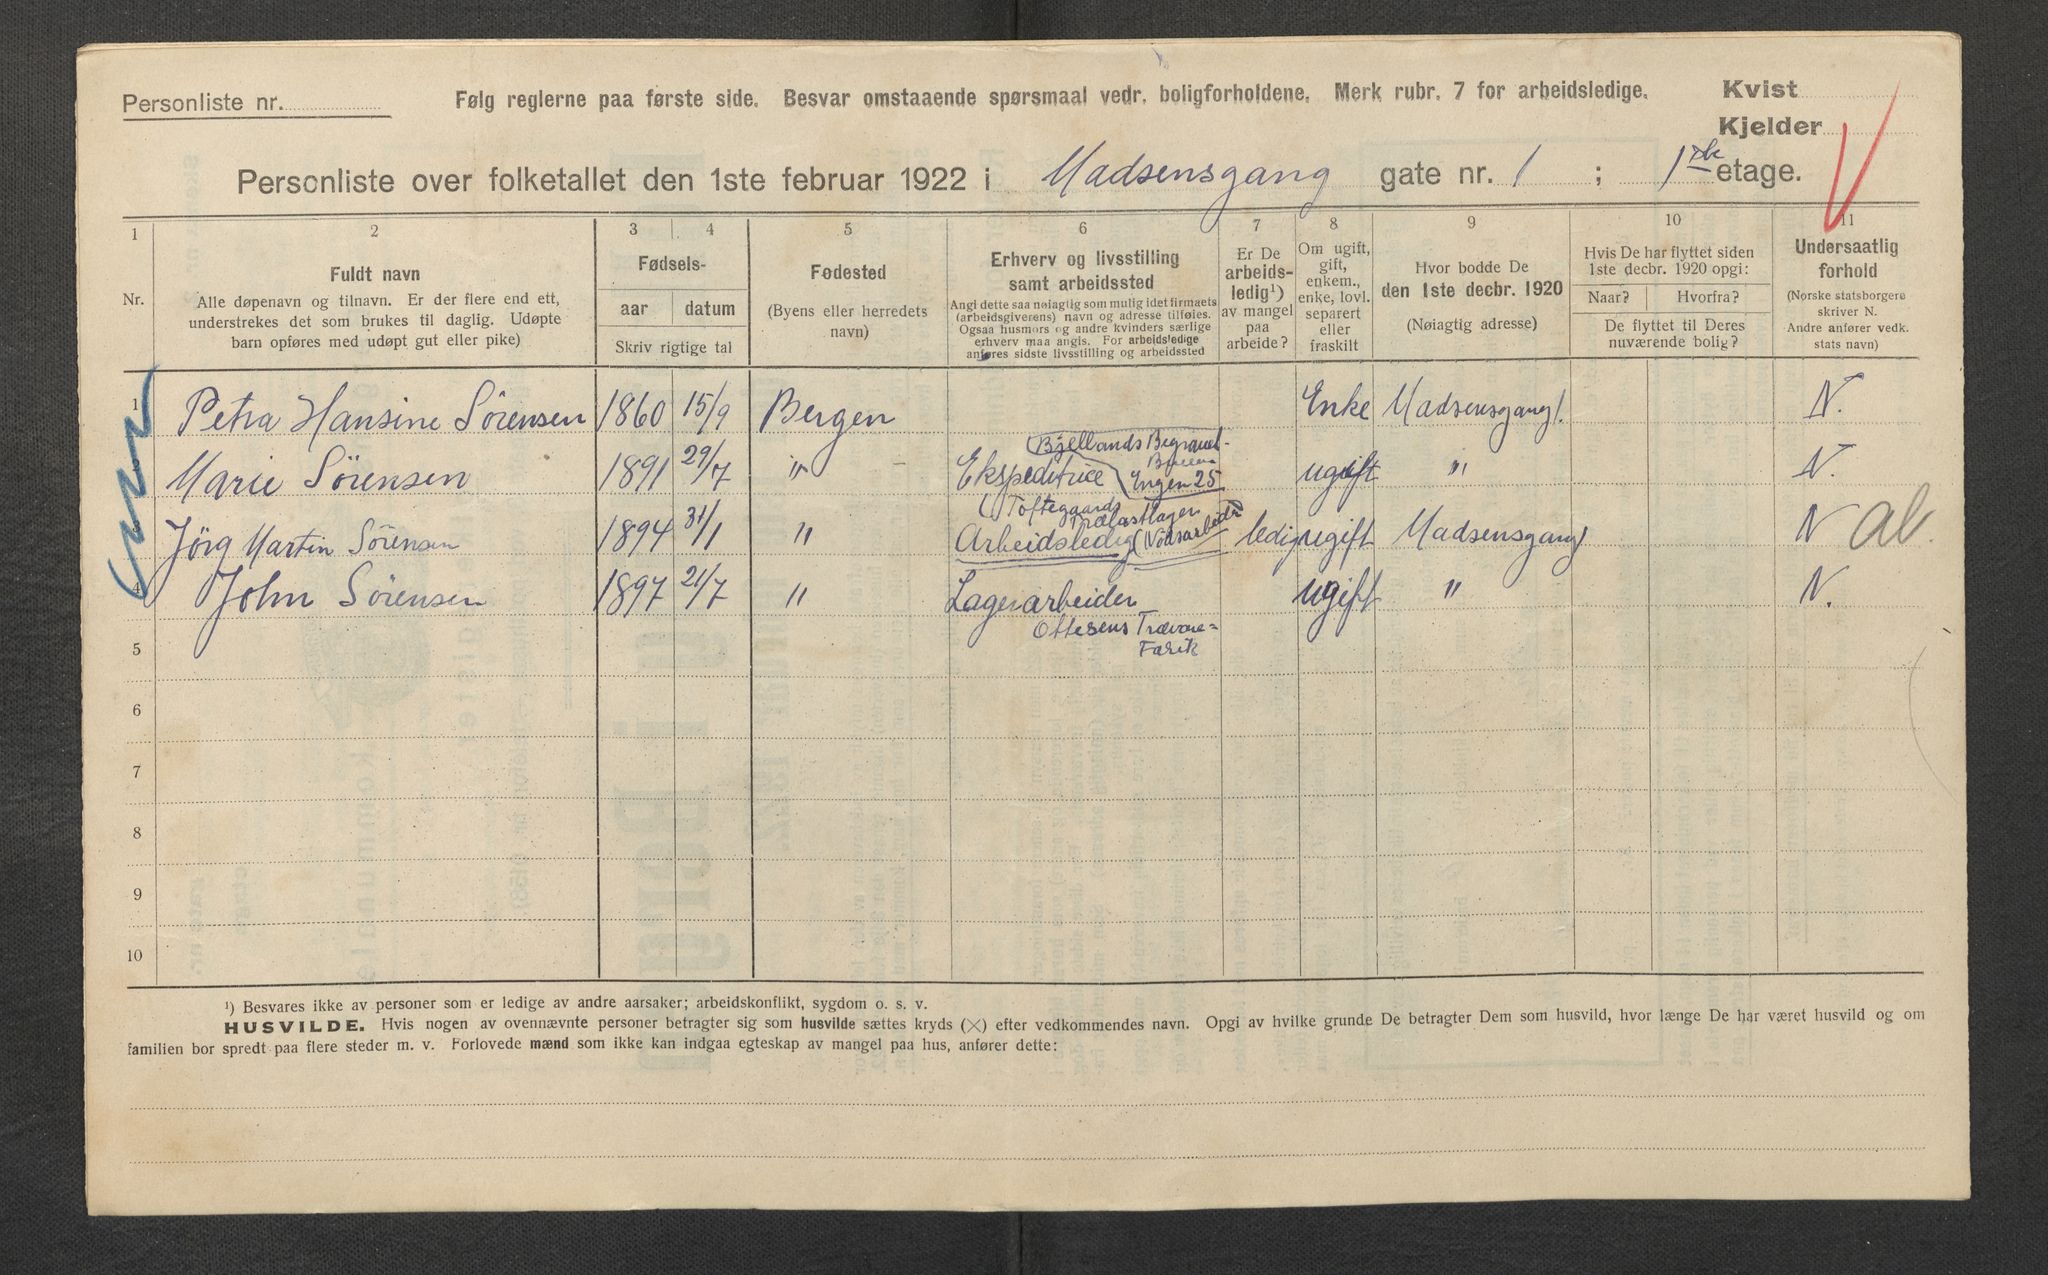 Personliste nr.
Følg reglerne paa første side. Besvar omstaaende spørsmaal vedr. boligforholdene. Merk rubr. 7 for arbeidsledige.
Kvist
Kjelder
Personliste over folketallet den 1ste februar 1922 i Madsensgang gate nr. 1 ; 1ste etage.
1 2 3 4 5 6 7 8 9 10 11
Nr.
Fuldt navn
Alle døpenavn og tilnavn. Er der flere end ett,
understrekes det som brukes til daglig. Udøpte
barn opføres med udøpt gut eller pike)
Fødsels-
aar datum
Skriv rigtige tal
Fødested
(Byens eller herredets
navn)
Erhverv og livsstilling
samt arbeidssted
Angi dette saa nøiagtig som mulig idet firmaets
(arbeidsgiverens) navn og adresse tilføies.
Ogsaa husmors og andre kvinders særlige
erhverv maa angis. For arbeidsledige
anføres sidste livsstilling og arbeidssted
Er De
arbeids-
ledig¹)
av mangel
paa
arbeide?
Om ugift,
gift,
enkem.,
enke, lovl.
separert
eller
fraskilt
Hvor bodde De
den 1ste decbr. 1920
(Nøiagtig adresse)
Hvis De har flyttet siden
1ste decbr. 1920 opgi:
Naar? Hvorfra?
De flyttet til Deres
nuværende bolig?
Undersaatlig
forhold
(Norske statsborgere
skriver N.
Andre anfører vedk.
stats navn)
1 Petra Hansine Sörensen 1860 15/9 Bergen Enke Madsensgang 1. N.
Bjellands Begravel-
Marie Sörensen 1891 29/7 " Ekspeditrice Engen 25 ugift " N.
(Toftegaards
Trælastlager
3 Jörg Martin Sörensen 1894 31/1 " Arbeidsledig (Nödsarbeide) ledig ugift Madsensgang 1 N al.
4 John Sörensen 1897 21/7 " Lagerarbeider ugift " N.
Ottesens Trævare=
Fabrik
5
6
7
8
9
10
¹) Besvares ikke av personer som er ledige av andre aarsaker; arbeidskonflikt, sygdom o. s. v.
HUSVILDE. Hvis nogen av ovennævnte personer betragter sig som husvilde sættes kryds (×) efter vedkommendes navn. Opgi av hvilke grunde De betragter Dem som husvild, hvor længe De har været husvild og om
familien bor spredt paa flere steder m. v. Forlovede mænd som ikke kan indgaa egteskap av mangel paa hus, anfører dette: